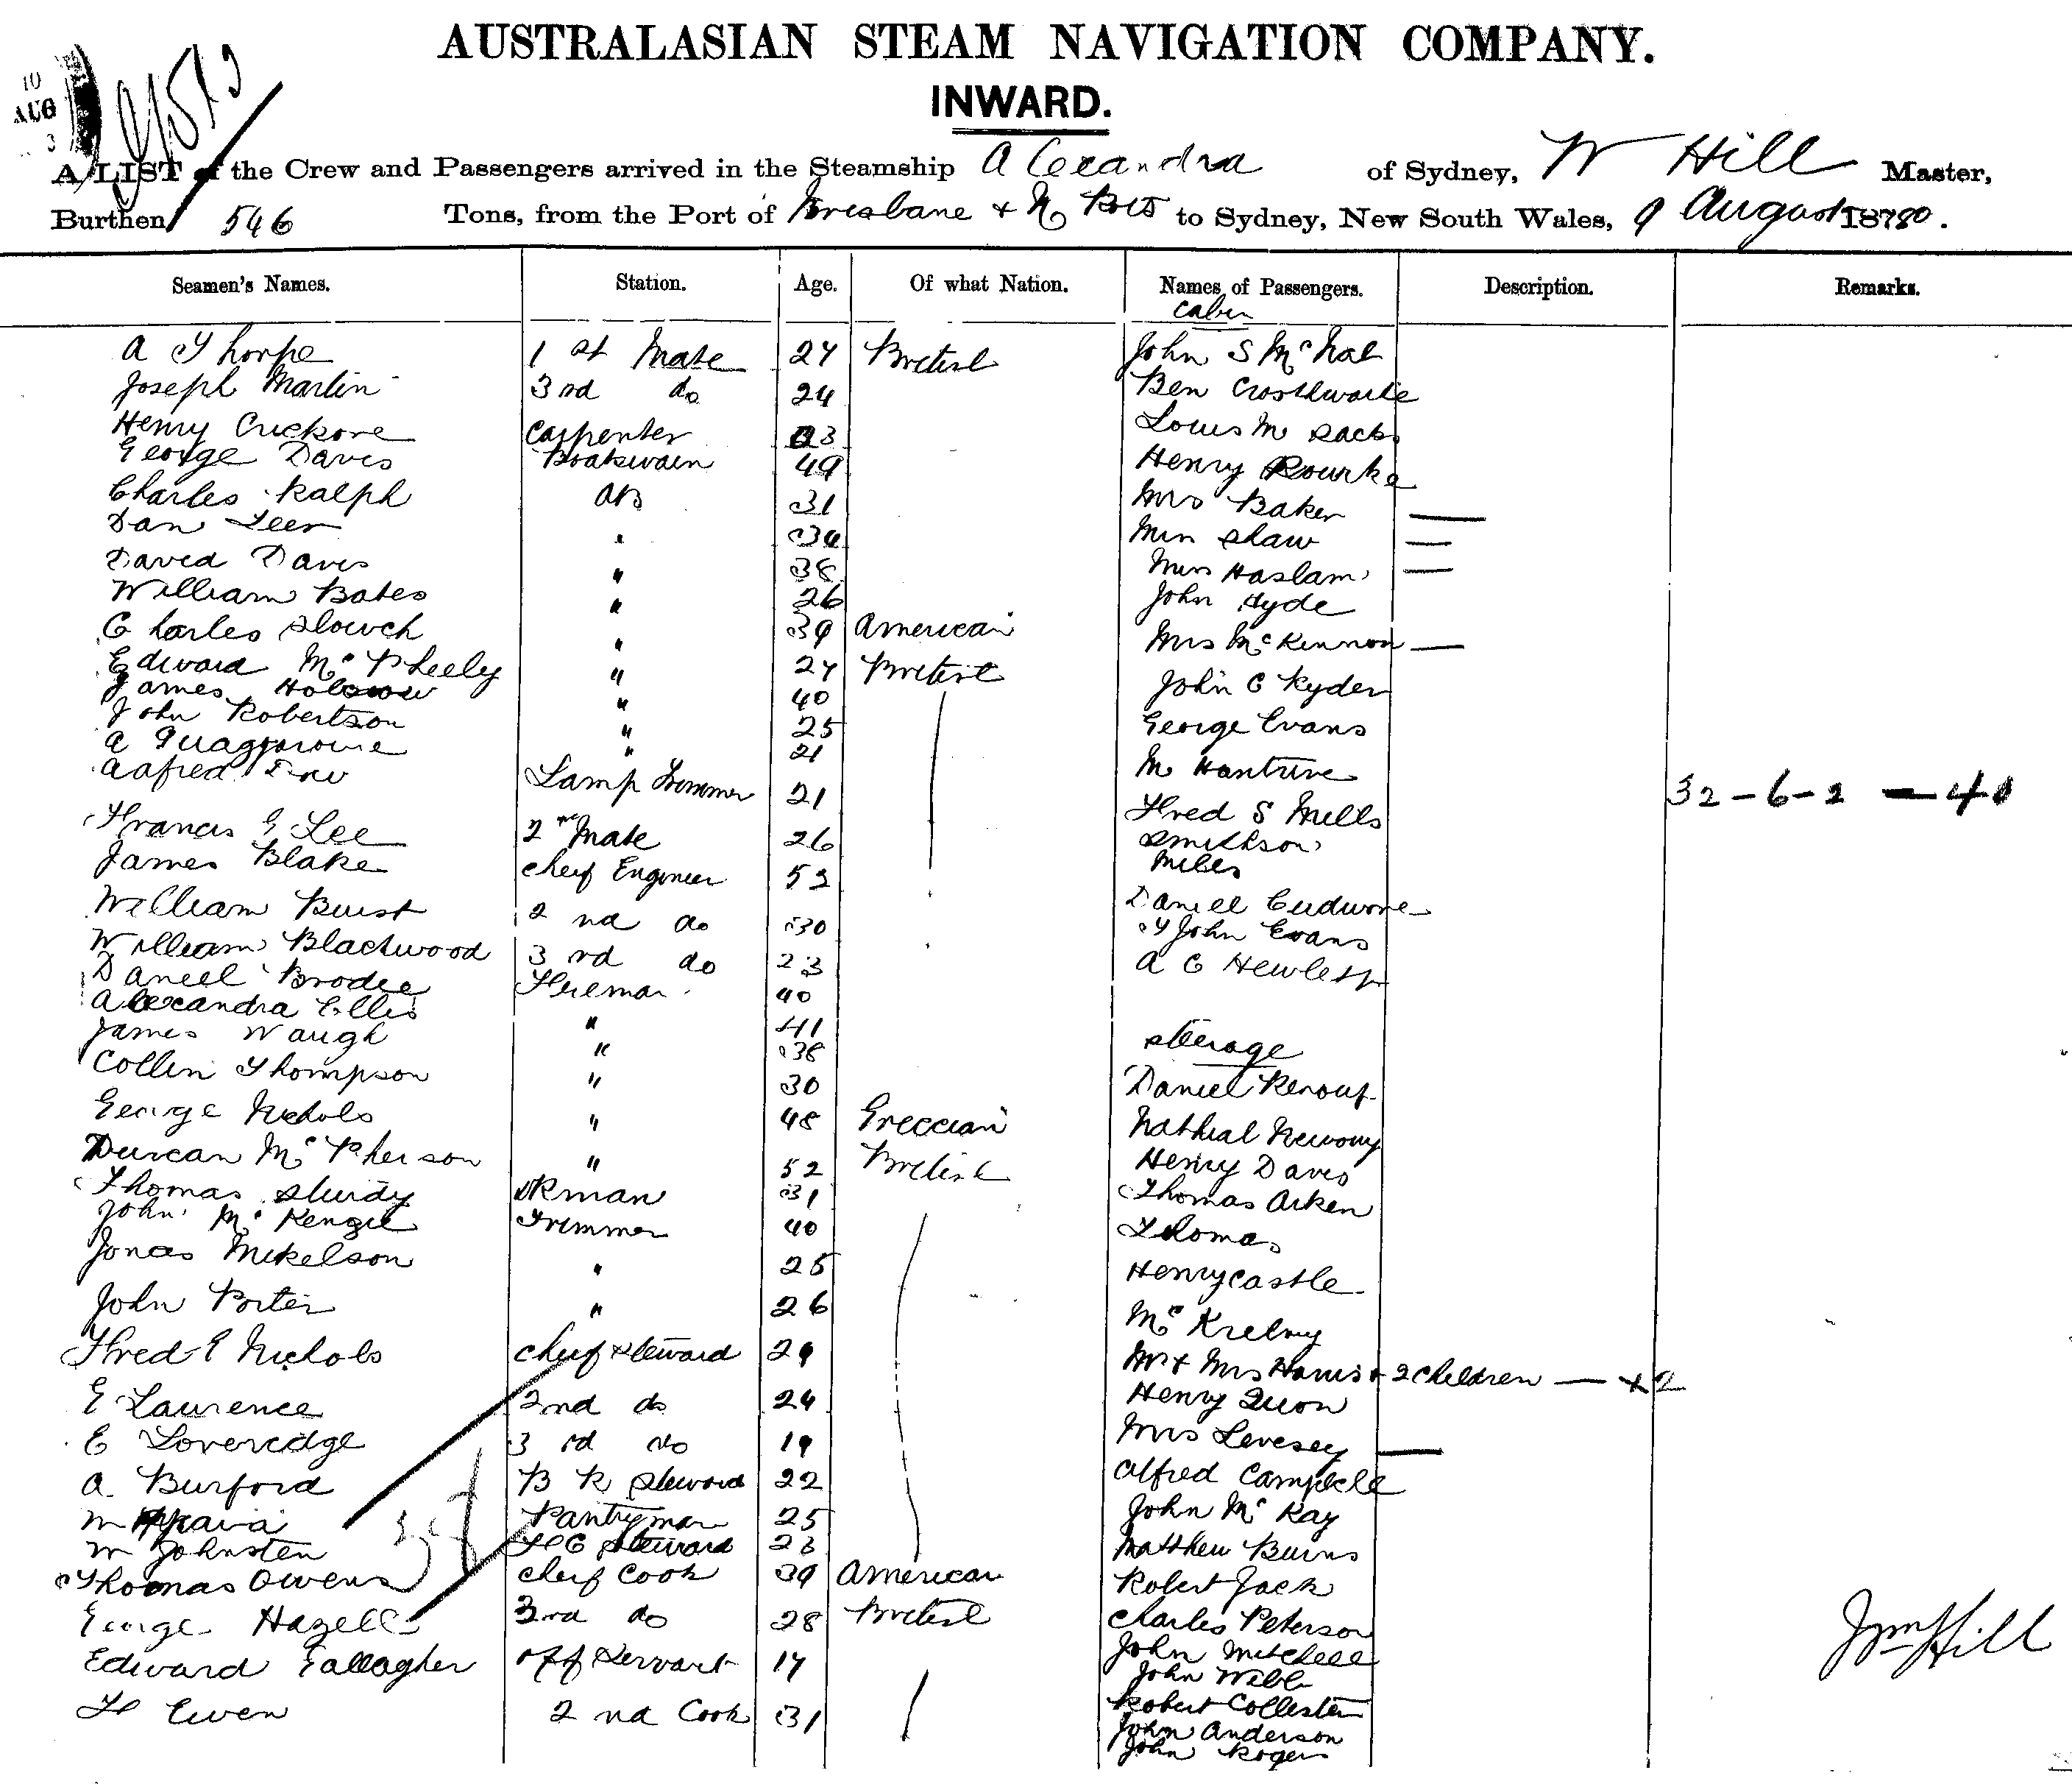 AUSTRALASIAN STEAM NAVIGATION COMPANY.
INWARD.
10
AUG
A LIST of the Crew and Passengers arrived in the Steamship Alexandra of Sydney, W Hill Master,
Burthen 546 Tons, from the Port of Brisbane + N Ports to Sydney, New South Wales, 9 August 1880.
Seamen's Names. Station. Age. Of what Nation. Names of Passengers. Description. Remarks.
Cabin
A Thorpe 1 st Mate 27 British John S McNab
Joseph Martin 3rd do 24 Ben Crosthwaite
Henry Carpenter 23 Louis M Sachs
George Davis Boatswain 49 Henry Rourke
Charles Ralph AB 31 Mrs Baker —
Dan " 34 Shaw —
David Davis " 38 Haslam —
William Bates " 26 John Hyde
Charles Slouch " 39 American Mrs McKinnon —
Edward McPheely " 27 British John C Ryder
James " 40 George Evans
John Robertson " 25
A " 21 M
Alfred Lamp Trimmer 21 Fred S Mills
32-6-2 — 40
Francis G Lee 2nd Mate 26 Smithson
James Blake Cheif Engineer 52 Miles
William Buist 2 nd do 30 Daniel
William Blackwood 3 rd do 23 John Evans
Daniel Brodie Fireman 40 A C Hewlett
Alexandra Ellis " 41
James Waugh " 38 Steerage
Collin Thompson " 30 Daniel Renouf
George Nichols " 48 Greccian
Duncan McPherson " 52 British Henry Davis
Thomas Sturdy 31 Thomas Aiken
John McKenzie Trimmer 40 Thomas
Jonas Mikelson " 25 Henry Castle
John Porter " 26 Mc
Fred E Nichols Cheif Steward 29 Mr + Mrs Harris + 2 Children — +2
E Laurence 2nd do 24 Henry
E Loveredge 3 rd do 19 Mrs Levesey —
A. Burford B R Steward 22 Alfred Campbell
Pantryman 25 John McKay
W Johnsten Steward 23 Matthew Burns
Thomas Owens Cheif Cook 39 American Robert Jack
George Hazell 3rd do 28 British Charles Peterson
John Mitchell
Edward Gallagher Off Servant 17 John Webb
Robert Collester
Ewen 2 nd Cook 31 John Anderson
John Rogers
Wm Hill